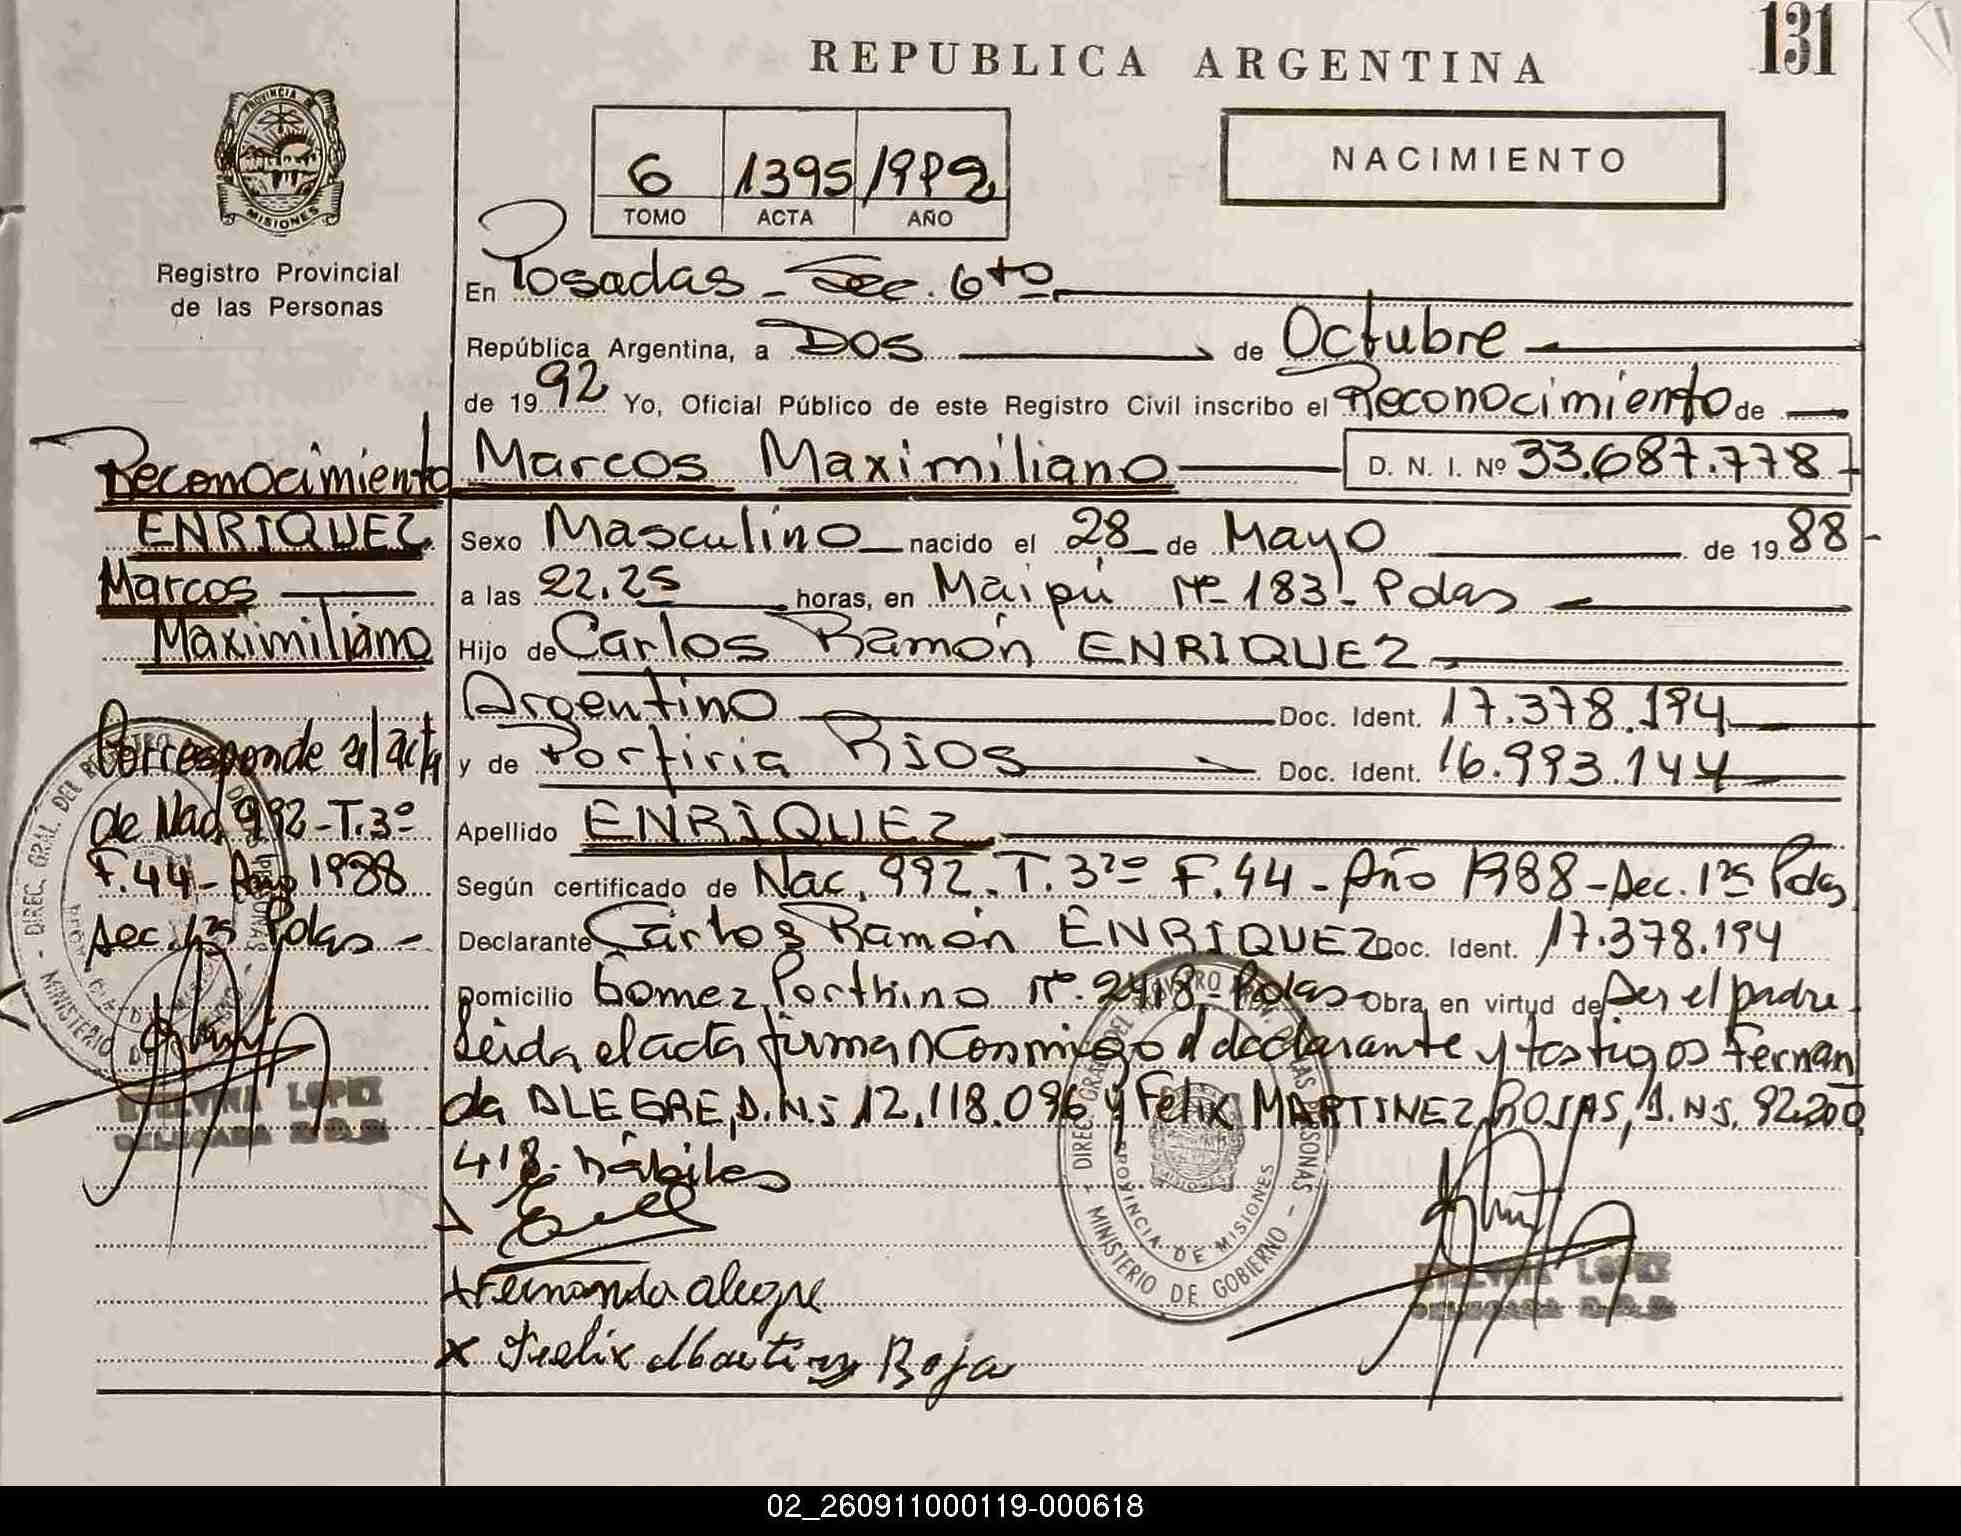 131
REPUBLICA ARGENTINA
PROVINCIA DE
MISIONES
Registro Provincial
de las Personas
6 1395 1992
TOMO ACTA AÑO
NACIMIENTO
En Posadas - Sec. 6to
República Argentina, a Dos de Octubre
de 1992 Yo, Oficial Público de este Registro Civil inscribo el Reconocimiento de
Marcos Maximiliano D. N. I. Nº 33.687.778
Sexo Masculino nacido el 28 de Mayo de 1988
a las 22.25 horas, en Maipú Nº 183 - Pdas
Hijo de Carlos Ramón ENRIQUEZ
Argentino Doc. Ident. 17.378.194
y de Porfiria RIOS Doc. Ident. 16.993.144
Apellido ENRIQUEZ
Según certificado de Nac. 992. T. 3º F. 44 - Año 1988 - Sec. 1ra Pdas
Declarante Carlos Ramón ENRIQUEZ Doc. Ident. 17.378.194
Domicilio Gomez Porthino Nº 2418 - Pdas Obra, en virtud de Ser el padre
Leida el acta firman conmigo el declarante y testigos Fernan
da ALEGRE, D.N.I 12.118.096 y Felix MARTINEZ ROJAS, D.N.I. 92.200
418 - hábiles
Fernanda Alegre
x Felix Martinez Roja
Reconocimiento
ENRIQUEZ
Marcos
Maximiliano
Corresponde al acta
de Nac. 992 - T. 3º
F. 44 - Año 1988
Sec. 1ra Pdas -
LOPEZ
DELEGADA
DIREC. GRAL. DEL REGISTRO DE LAS PERSONAS
PROVINCIA DE MISIONES
MINISTERIO DE GOBIERNO
LOPEZ
DELEGADA
02_260911000119-000618